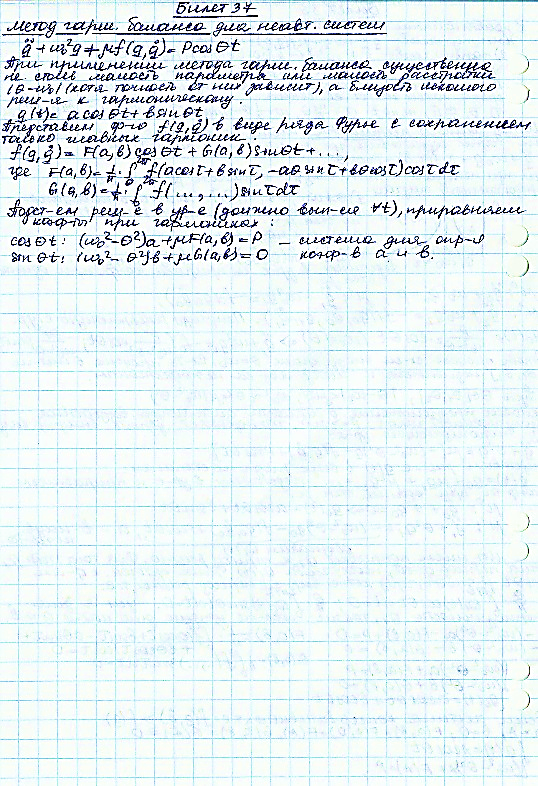 Билет 37
Метод гарм. баланса для неавт. систем
q̈ + ω₀²q + μf(q,q̇) = Pcosθt
При применении метода гарм. баланса существенна
не столь малость параметра или малость расстройки
|θ-ω₀| (хотя точность от них зависит), а близость искомого
реш-я к гармоническому.
q(t) = acosθt + bsinθt
Представим ф-ю f(q,q̇) в виде ряда Фурье с сохранением
только главных гармоник.
f(q,q̇) = F(a,b)cosθt + G(a,b)sinθt + ...,
где F(a,b) = 1/π · ∫₀²π f(acosτ + bsinτ, -aθsinτ + bθcosτ)cosτdτ
G(a,b) = 1/π · ∫₀²π f(...,...)sinτdτ
Подст-ем реш-е в ур-е (должно вып-ся ∀t), приравняем
коэф-ты при гармониках:
cosθt: (ω₀² - θ²)a + μF(a,b) = P – система для опр-я
sinθt: (ω₀² - θ²)b + μG(a,b) = 0 коэф-в a и b.